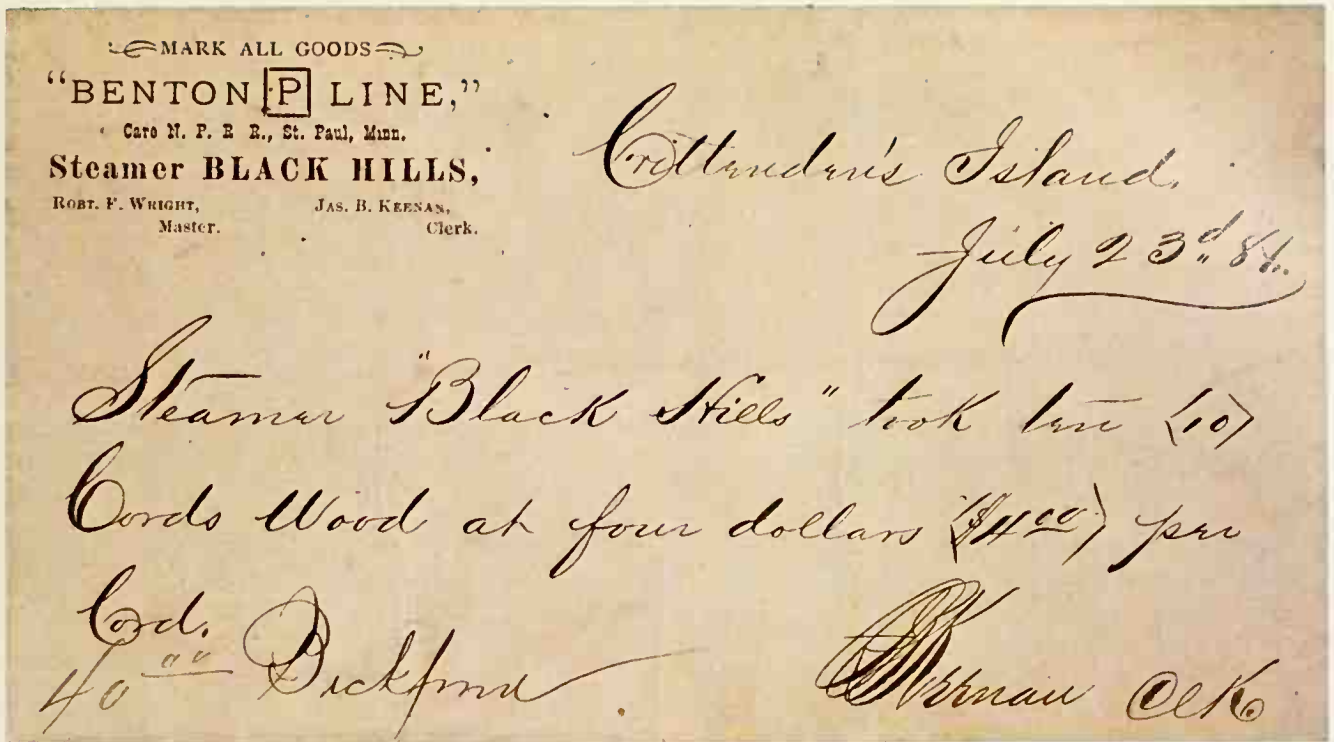 MARK ALL GOODS
"BENTON P LINE,"
Care N. P. R R., St. Paul, Minn.
Steamer BLACK HILLS,
ROBT. F. WRIGHT, JAS. B. KEENAN,
Master. Clerk.
Crittenden's Island.
July 23d 84.
Steamer "Black Hills" took ten (10)
Cords Wood at four dollars ($4.00) per
Cord.
40 00 Bickford JBKeenan Clk